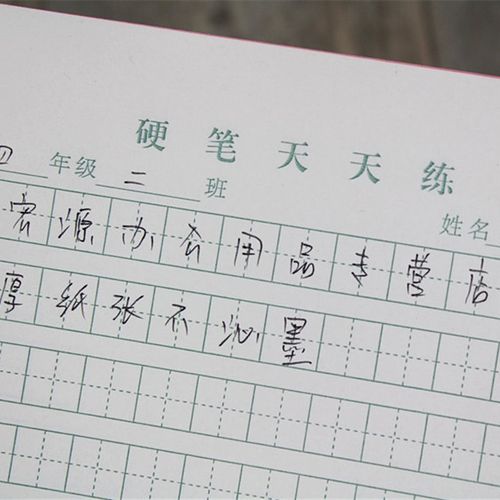 硬笔天天练
四 年级 二 班 姓名
宏源办公用品专营店
厚纸张不沁墨